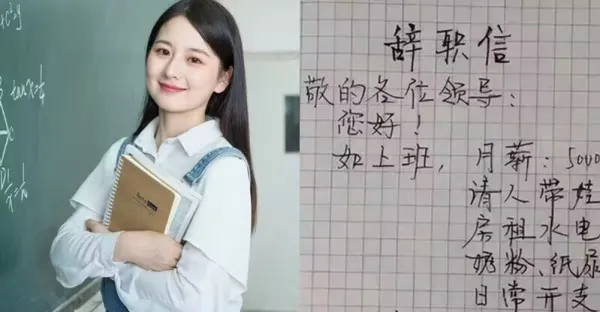 辞职信
敬的各位领导:
您好!
如上班,月薪:5000
请人带娃
房租水电
奶粉、纸尿
日常开支